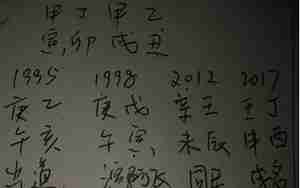 甲 丁 甲 乙
寅, 卯 戌 丑
1995 1998 2012 2017
庚乙 庚戊 辛壬 壬丁
午亥 午寅、 未辰 申酉
出道